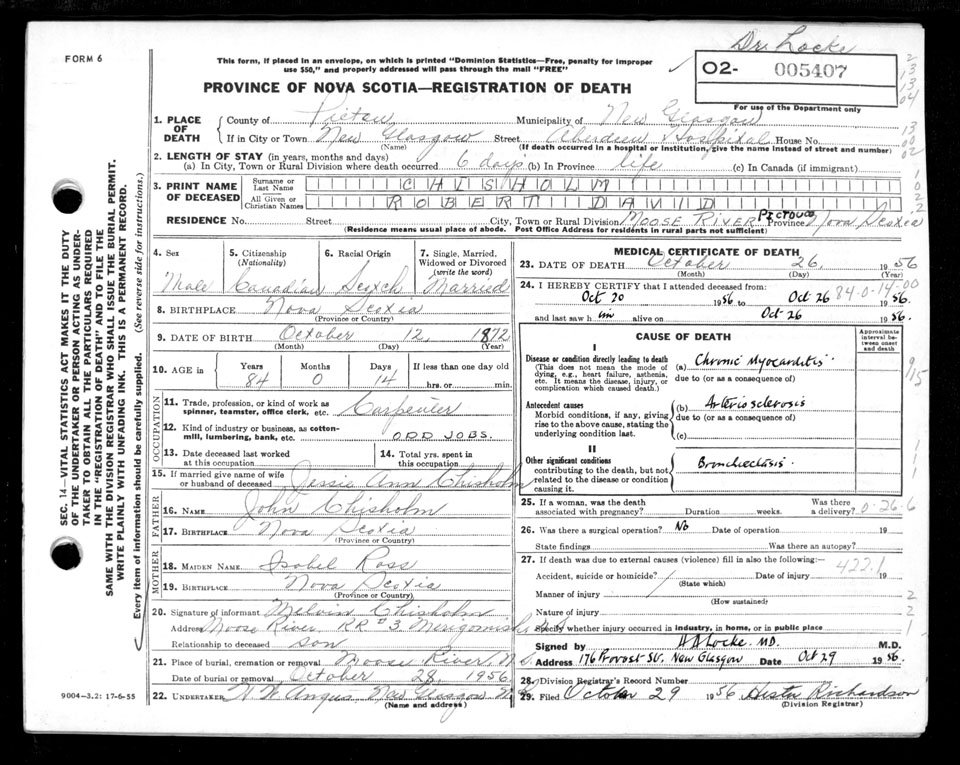 Dr. Locke
FORM 6
This form, if placed in an envelope, on which is printed "Dominion Statistics—Free, penalty for improper
use $50," and properly addressed will pass through the mail "FREE"
O2- 005407
For use of the Department only
PROVINCE OF NOVA SCOTIA—REGISTRATION OF DEATH
1. PLACE OF DEATH
County of Pictou Municipality of New Glasgow
If in City or Town New Glasgow Street Aberdeen Hospital House No.
(Name) (If death occurred in a hospital or institution, give the name instead of street and number)
2. LENGTH OF STAY (in years, months and days)
(a) In City, Town or Rural Division where death occurred 6 days (b) In Province life (c) In Canada (if immigrant)
3. PRINT NAME OF DECEASED
Surname or Last Name CHISHOLM
All Given or Christian Names ROBERT DAVID
RESIDENCE No. Street City, Town or Rural Division MOOSE RIVER PICTOU CO Province Nova Scotia
(Residence means usual place of abode. Post Office Address for residents in rural parts not sufficient)
4. Sex Male
5. Citizenship (Nationality) Canadian
6. Racial Origin Scotch
7. Single, Married, Widowed or Divorced (write the word) Married
8. BIRTHPLACE Nova Scotia
(Province or Country)
9. DATE OF BIRTH October 12, 1872
(Month) (Day) (Year)
10. AGE in Years 84 Months 0 Days 14 If less than one day
hrs. or min.
OCCUPATION
11. Trade, profession, or kind of work as spinner, teamster, office clerk, etc. Carpenter
12. Kind of industry or business, as cotton-mill, lumbering, bank, etc. ODD JOBS.
13. Date deceased last worked at this occupation
14. Total yrs. spent in this occupation
15. If married give name of wife or husband of deceased Jessie Ann Chisholm
FATHER
16. NAME John Chisholm
17. BIRTHPLACE Nova Scotia
(Province or Country)
MOTHER
18. MAIDEN NAME Isobel Ross
19. BIRTHPLACE Nova Scotia
(Province or Country)
20. Signature of informant Melvin Chisholm
Address Moose River, RR #3 Merigomish N.S.
Relationship to deceased son
21. Place of burial, cremation or removal Moose River, N.S.
Date of burial or removal October 28, 1956
22. UNDERTAKER H. W. Angus New Glasgow N.S.
(Name and address)
9004-3.2: 17-6-55
MEDICAL CERTIFICATE OF DEATH
23. DATE OF DEATH October 26, 1956
(Month) (Day) (Year)
24. I HEREBY CERTIFY that I attended deceased from:
Oct 20 1956 to Oct 26 1956.
84-0-14-00
and last saw him alive on Oct 26 1956.
CAUSE OF DEATH
Approximate interval between onset and death
I
Disease or condition directly leading to death
(This does not mean the mode of dying, e.g., heart failure, asthenia, etc. It means the disease, injury, or complication which caused death.)
(a) Chronic Myocarditis
due to (or as a consequence of)
Antecedent causes
Morbid conditions, if any, giving rise to the above cause, stating the underlying condition last.
(b) Arteriosclerosis
due to (or as a consequence of)
(c)
II
Other significant conditions
contributing to the death, but not related to the disease or condition causing it.
Bronchiectasis.
25. If a woman, was the death associated with pregnancy? Duration weeks. Was there a delivery?
0-26-6
26. Was there a surgical operation? No Date of operation 19
State findings Was there an autopsy?
27. If death was due to external causes (violence) fill in also the following:
422.1
Accident, suicide or homicide? Date of injury 19
(State which)
Manner of injury
(How sustained)
Nature of injury
Specify whether injury occurred in industry, in home, or in public place
Signed by H B Locke MD. M.D.
Address 176 Provost St. New Glasgow Date Oct 29 1956.
28. Division Registrar's Record Number
29. Filed October 29 1956 Hester Richardson
(Division Registrar)
SEC. 14—VITAL STATISTICS ACT MAKES IT THE DUTY
OF THE UNDERTAKER OR PERSON ACTING AS UNDER-
TAKER TO OBTAIN ALL THE PARTICULARS REQUIRED
IN THE "REGISTRATION OF DEATH" AND TO FILE THE
SAME WITH THE DIVISION REGISTRAR WHO SHALL ISSUE THE BURIAL PERMIT.
WRITE PLAINLY WITH UNFADING INK. THIS IS A PERMANENT RECORD.
Every item of information should be carefully supplied. (See reverse side for instructions.)